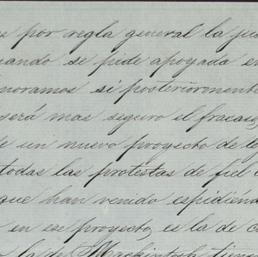 por regla general la
cuando se pide apoyada en
noramos si posteriormente
será mas seguro el fracaso,
de un nuevo proyecto de
todas las protestas de fiel
que han venido espidiendo
en ese proyecto, es la de
la de Mackintosh